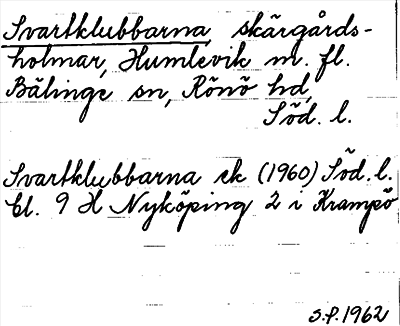 Svartklubbarna, skärgårds-
holmar, Humlevik m. fl.
Bälinge sn, Rönö hd,
Söd. l.
Svartklubbarna ek (1960) Söd. l.
Bl. 9 H Nyköping 2 i Krampö
S.P. 1962